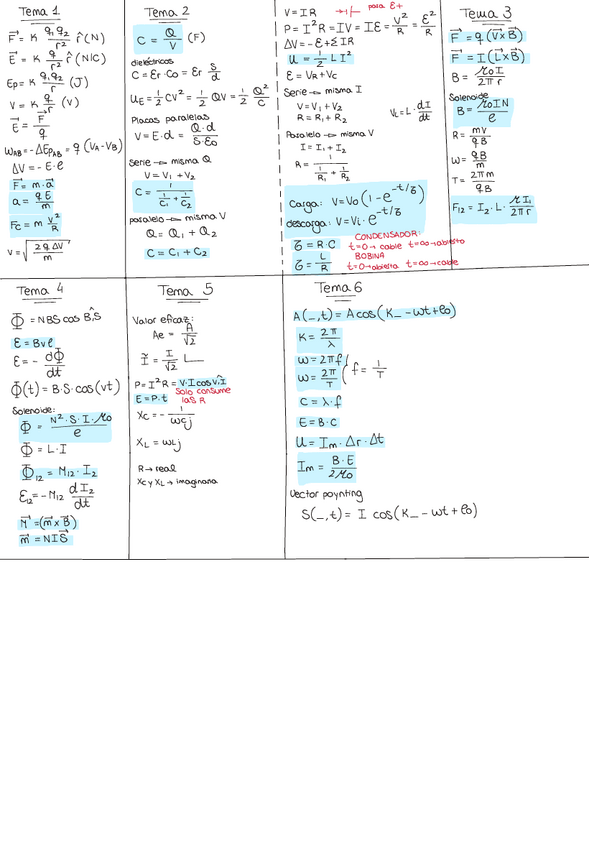 Tema 1
F⃗ = K q₁q₂/r² r̂ (N)
E⃗ = K q/r² r̂ (N/C)
Ep = K q₁q₂/r (J)
V = K q/r (V)
E⃗ = F⃗/q
W_AB = -ΔEp_AB = q (V_A - V_B)
ΔV = - E·e
F⃗ = m·a⃗
a = qE/m
Fc = m v²/R
v = √(2qΔV/m)
Tema 2
C = Q/V (F)
dieléctricos
C = εr·C₀ = εr S/d
U_E = 1/2 CV² = 1/2 QV = 1/2 Q²/C
Placas paralelas
V = E·d = Q·d/S·ε₀
Serie → misma Q
V = V₁ + V₂
C = 1/(1/C₁ + 1/C₂)
paralelo → misma V
Q = Q₁ + Q₂
C = C₁ + C₂
V = IR
para E+
P = I²R = IV = IE = V²/R = E²/R
ΔV = - E + Σ IR
U = 1/2 L I²
E = V_R + V_C
Serie → misma I
V = V₁ + V₂
R = R₁ + R₂
V_L = L · dI/dt
Paralelo → misma V
I = I₁ + I₂
R = 1/(1/R₁ + 1/R₂)
Carga: V = V₀ (1 - e^(-t/τ))
descarga: V = Vi · e^(-t/τ)
τ = R·C
τ = L/R
CONDENSADOR:
t=0 → cable t=∞ → abierto
BOBINA
t=0 → abierta t=∞ → cable
Tema 3
F⃗ = q (V⃗ x B⃗)
F⃗ = I (L⃗ x B⃗)
B = μ₀I/2πr
Solenoide
B = μ₀IN/e
R = mv/qB
ω = qB/m
T = 2πm/qB
F₁₂ = I₂ · L · μI₁/2πr
Tema 4
Φ = NBS cos B̂,S
E = Bvl
E = - dΦ/dt
Φ(t) = B·S·cos(vt)
Solenoide:
Φ = N²·S·I·μ₀/e
Φ = L·I
Φ₁₂ = M₁₂ · I₂
E₁₂ = - M₁₂ dI₂/dt
M⃗ = (m⃗ x B⃗)
m⃗ = NIS⃗
Tema 5
Valor eficaz:
Ae = A/√2
Ĩ = I/√2
P = I²R = V·I cos V,I
E = P·t
Solo consume las R
Xc = - 1/ωC j
X_L = ωL j
R → real
Xc y X_L → imaginaria
Tema 6
A(_,t) = A cos(K_ - ωt + φ₀)
K = 2π/λ
ω = 2πf
ω = 2π/T
f = 1/T
C = λ·f
E = B·C
U = Im · Δr · Δt
Im = B·E/2μ₀
Vector poynting
S(_,t) = I cos(K_ - ωt + φ₀)